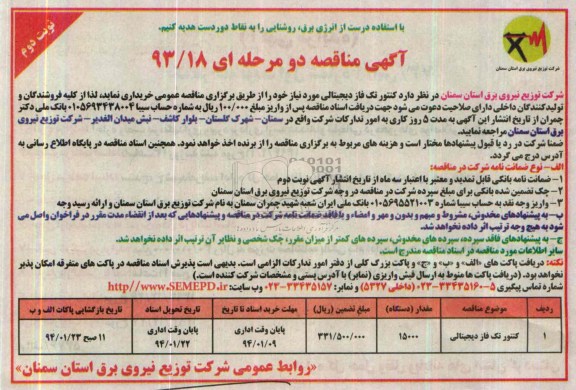 با استفاده درست از انرژی برق، روشنایی را به نقاط دوردست هدیه کنیم.
نوبت دوم
آگهی مناقصه دو مرحله ای ۹۳/۱۸
شرکت توزیع نیروی برق استان سمنان
شرکت توزیع نیروی برق استان سمنان در نظر دارد کنتور تک فاز دیجیتالی مورد نیاز خود را از طریق برگزاری مناقصه عمومی خریداری نماید، لذا از کلیه فروشندگان و
تولیدکنندگان داخلی دارای صلاحیت دعوت می شود جهت دریافت اسناد مناقصه پس از واریز مبلغ ۱۰۰/۰۰۰ ریال به شماره حساب سیبا ۰۱۰۵۶۹۳۴۳۸۰۰۴ بانک ملی دکتر
چمران از تاریخ انتشار این آگهی به مدت ۵ روز کاری به امور تدارکات شرکت واقع در سمنان - شهرک گلستان - بلوار کاشف - نبش میدان الغدیر - شرکت توزیع نیروی
برق استان سمنان مراجعه نمایید.
ضمنا شرکت در رد یا قبول پیشنهادها مختار است و هزینه های مربوط به برگزاری مناقصه را از برنده اخذ خواهد نمود. همچنین اسناد مناقصه در پایگاه اطلاع رسانی به
آدرس درج می گردد.
الف - نوع ضمانت نامه شرکت در مناقصه:
۱- ضمانت نامه بانکی قابل تمدید و معتبر با اعتبار سه ماه از تاریخ انتشار آگهی نوبت دوم
۲- چک تضمین شده بانکی برای مبلغ سپرده شرکت در مناقصه در وجه شرکت توزیع نیروی برق استان سمنان
۳- واریز وجه نقد به حساب سیبا شماره ۰۱۰۵۶۹۵۵۲۱۰۰۳ بانک ملی ایران شعبه شهید چمران سمنان به نام شرکت توزیع برق استان سمنان و ارائه رسید وجه
ب- به پیشنهادهای مخدوش، مشروط و مبهم و بدون و مهر و امضاء و یا فاقد ضمانت نامه شرکت در مناقصه و پیشنهادهایی که بعد از انقضاء مدت مقرر در فراخوان واصل می
شود به هیچ وجه ترتیب اثر داده نخواهد شد.
ج- به پیشنهادهای فاقد سپرده، سپرده های مخدوش، سپرده های کمتر از میزان مقرر، چک شخصی و نظایر آن ترتیب اثر داده نخواهد شد.
سایر اطلاعات مورد مناقصه در اسناد مناقصه مندرج است.
نکته: دریافت پاکت های «الف» و «ب» و «ج» و پاکت بزرگ کلی از دفتر امور تدارکات الزامی است. بدیهی است پذیرش اسناد مناقصه در پاکت های متفرقه امکان پذیر
نخواهد بود. (دریافت پاکت ها منوط به ارسال فیش واریزی (نمابر) با آدرس پستی و مشخصات شرکت کننده است.)
شماره تماس پیگیری ۵-۳۳۴۳۵۱۶۰-۰۲۳ (داخلی ۵۳۳۷) و نمابر: ۳۳۴۳۵۱۵۷-۰۲۳ وب سایت: http//www.SEMEPD.ir
ردیف | موضوع مناقصه | مقدار (دستگاه) | مبلغ تضمین (ریال) | مهلت خرید اسناد تا تاریخ | تاریخ تحویل اسناد | تاریخ بازگشایی پاکات الف و ب
۱ | کنتور تک فاز دیجیتالی | ۱۵۰۰۰ | ۳۳۱/۵۰۰/۰۰۰ | پایان وقت اداری ۹۴/۰۱/۰۹ | پایان وقت اداری ۹۴/۰۱/۲۲ | ۱۱ صبح ۹۴/۰۱/۲۳
«روابط عمومی شرکت توزیع نیروی برق استان سمنان»